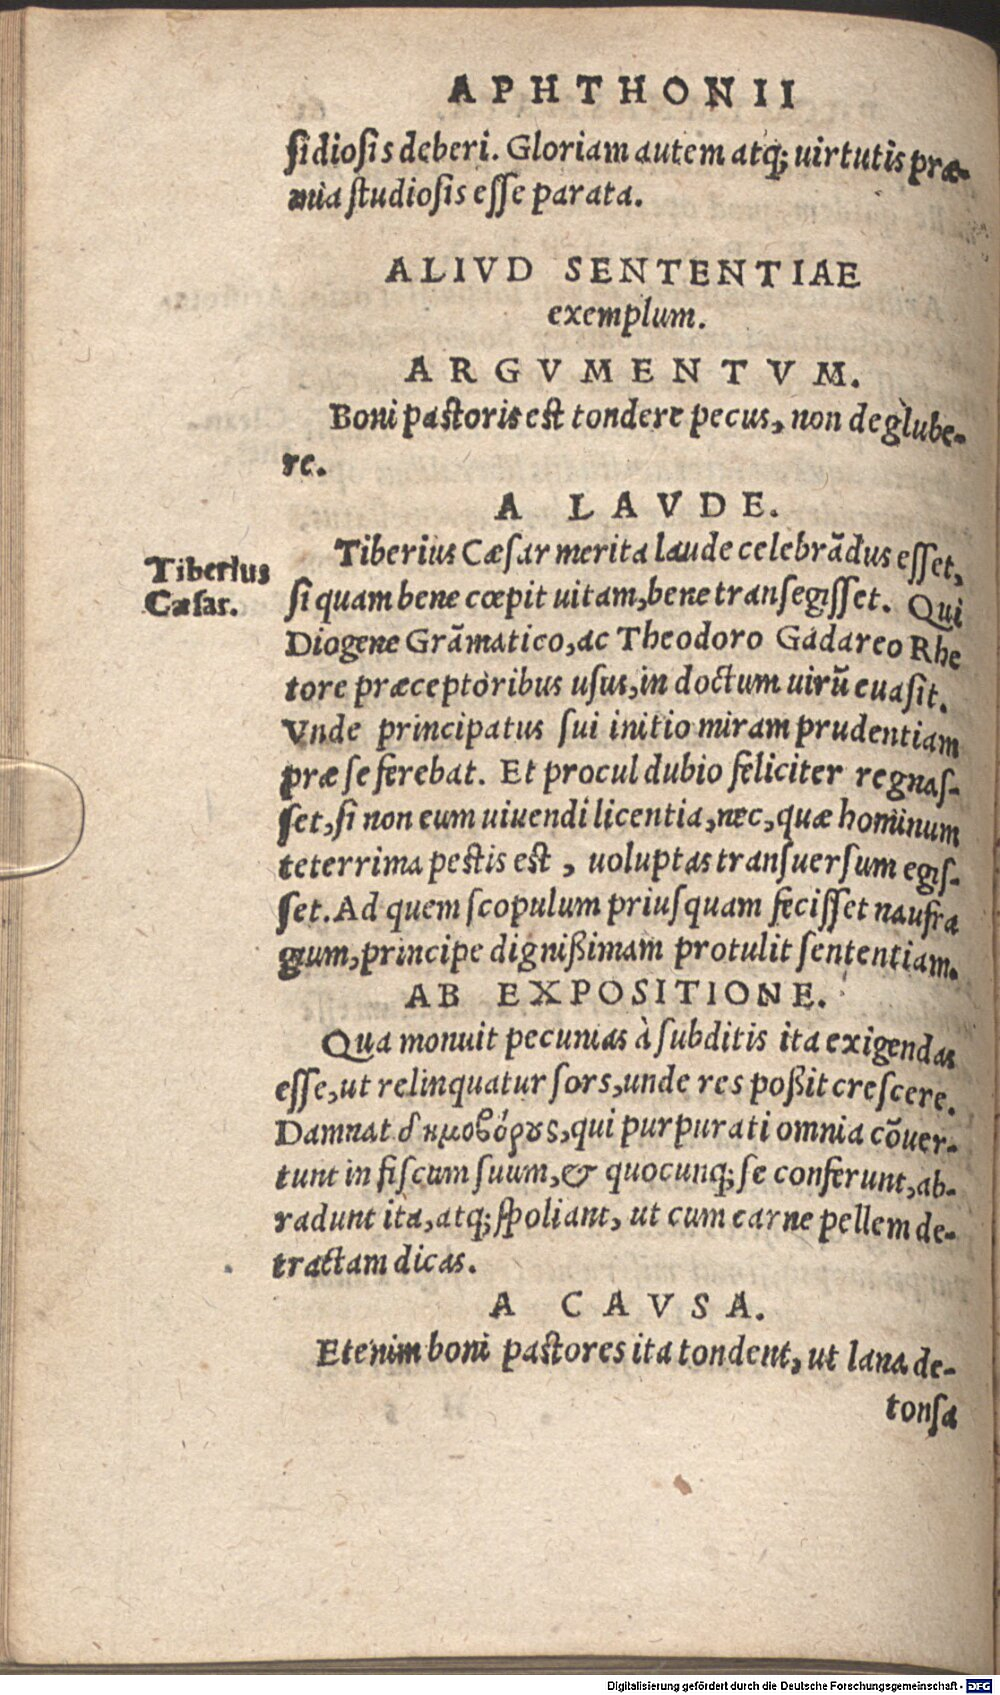 APHTHONII
sidiosis deberi. Gloriam autem atq; uirtutis præ-
mia studiosis esse parata.
ALIVD SENTENTIAE
exemplum.
ARGVMENTVM.
Boni pastoris est tondere pecus, non deglube-
re.
A LAVDE.
Tiberius Cæsar.
Tiberius Cæsar merita laude celebrādus esset,
si quam bene cœpit uitam, bene transegisset. Qui
Diogene Grāmatico, ac Theodoro Gadareo Rhe
tore præceptoribus usus, in doctum uirū euasit.
Vnde principatus sui initio miram prudentiam
præ se ferebat. Et procul dubio feliciter regnas-
set, si non eum uiuendi licentia, nec, quæ hominum
teterrima pestis est, uoluptas transuersum egis-
set. Ad quem scopulum priusquam fecisset naufra
gium, principe dignißimam protulit sententiam.
AB EXPOSITIONE.
Qua monuit pecunias à subditis ita exigendas
esse, ut relinquatur sors, unde res poßit crescere.
Damnat δημοβόρους, qui purpurati omnia cōuer-
tunt in fiscum suum, & quocunq; se conferunt, ab-
radunt ita, atq; spoliant, ut cum carne pellem de-
tractam dicas.
A CAVSA.
Etenim boni pastores ita tondent, ut lana de-
tonsa
Digitalisierung gefördert durch die Deutsche Forschungsgemeinschaft - DFG